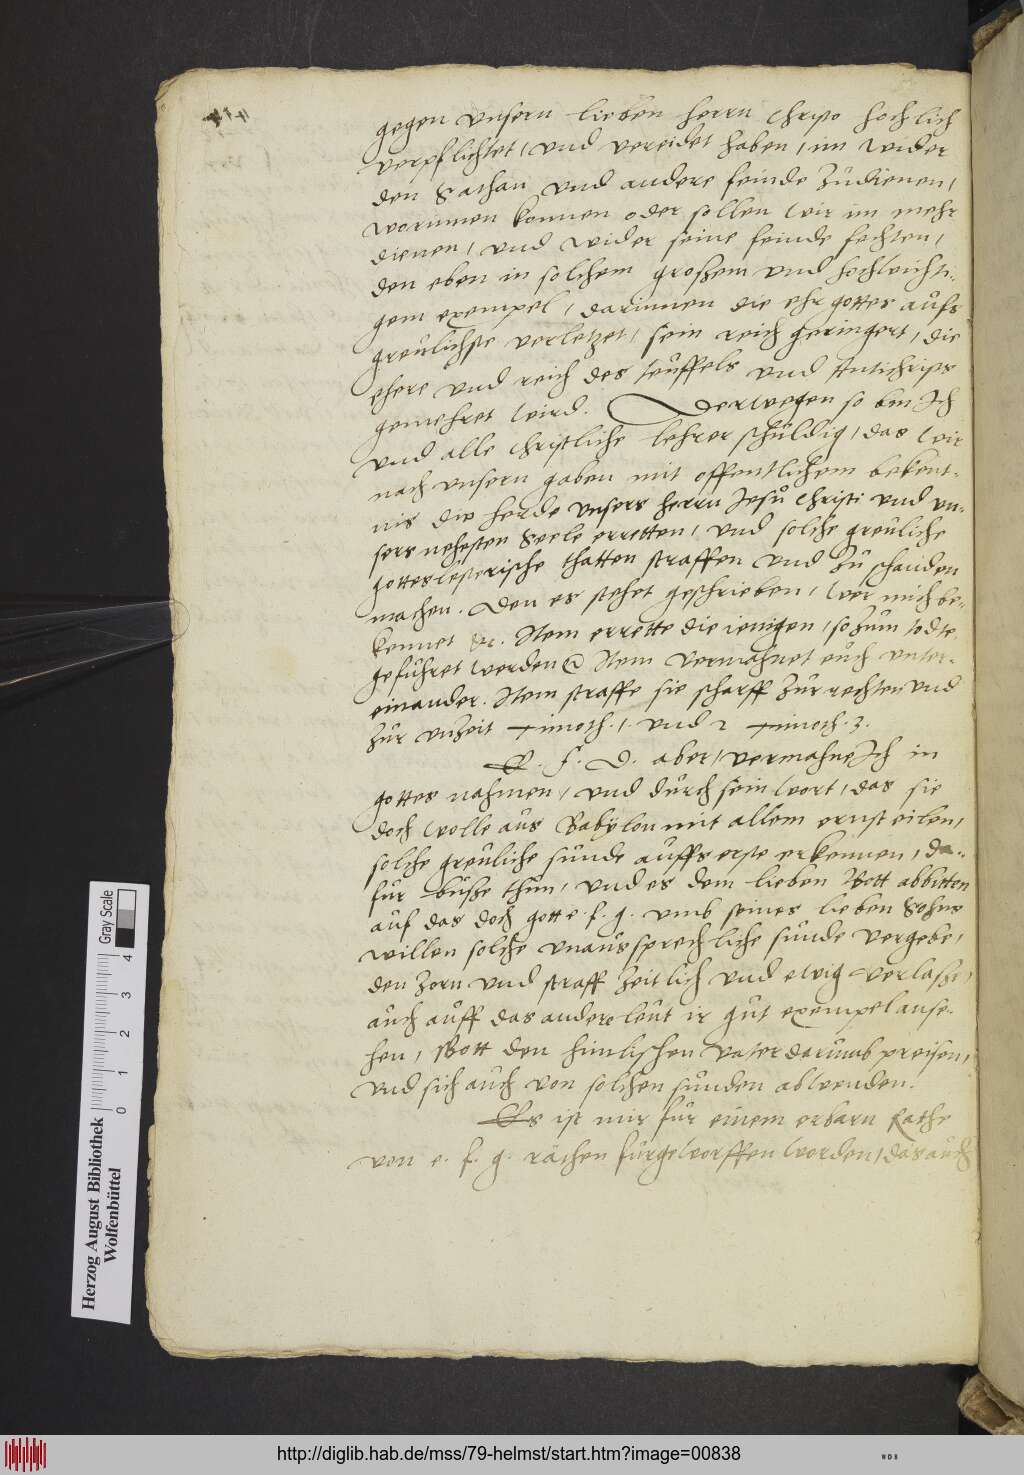 gegen unsern lieben herrn Christo hochlich
verpflichtet, und vereidet haben, im wider
den Sathan und andere feinde zudienen,
worinnen konnen oder sollen wir im mehr
dienen, und wider seine feinde fechten,
den eben in solchem großem und hochwichti-
gem exempel, darinnen die ehr gottes aufs
greulichste verletzet, sein reich geringert, die
ehere und reich des teuffels und Antichrists
gemehret wird. Derwegen so bin Ich
und alle Christliche lehrer schuldig, das wir
nach unsern gaben mit offentlichem bekent-
nis die herde unsers herrn Jesu Christi und un-
sers nehesten Seele erretten, und solche greuliche
gotteslesterische thatten straffen und zu schanden
machen. Den es stehet geschrieben, Wer mich be-
kennet etc. Item errette die ienigen, so zum todte
gefuhret werden etc Item vermahnet euch unter-
einander. Item straffe sie scharff zur rechten und
zur unzeit Timoth. , und 2 Timoth. 3.
E. f. D. aber, vermahne Ich in
gottes nahmen, und durch sein wort, das sie
doch wolle aus Babylon mit allem ernst eilen,
solche greuliche sunde auffs erste erkennen, da-
fur buße thun, und es dem lieben Gott abbitten
auf das doch gott e. f. g. umb seines lieben Sohns
willen solche unaussprechliche sunde vergebe,
den zorn und straff zeitlich und ewig verlaße,
auch auff das andere leut ir gut exempel anse-
hen, Gott den himlischen vater darumb preisen,
und sich auch von solchen sunden abwenden.
Es ist mir fur einem erbarn Rathe
von e. f. g. rathen furgeworffen worden, das auch
Herzog August Bibliothek
Wolfenbüttel
0 1 2 3 4
Gray Scale
http://diglib.hab.de/mss/79-helmst/start.htm?image=00838